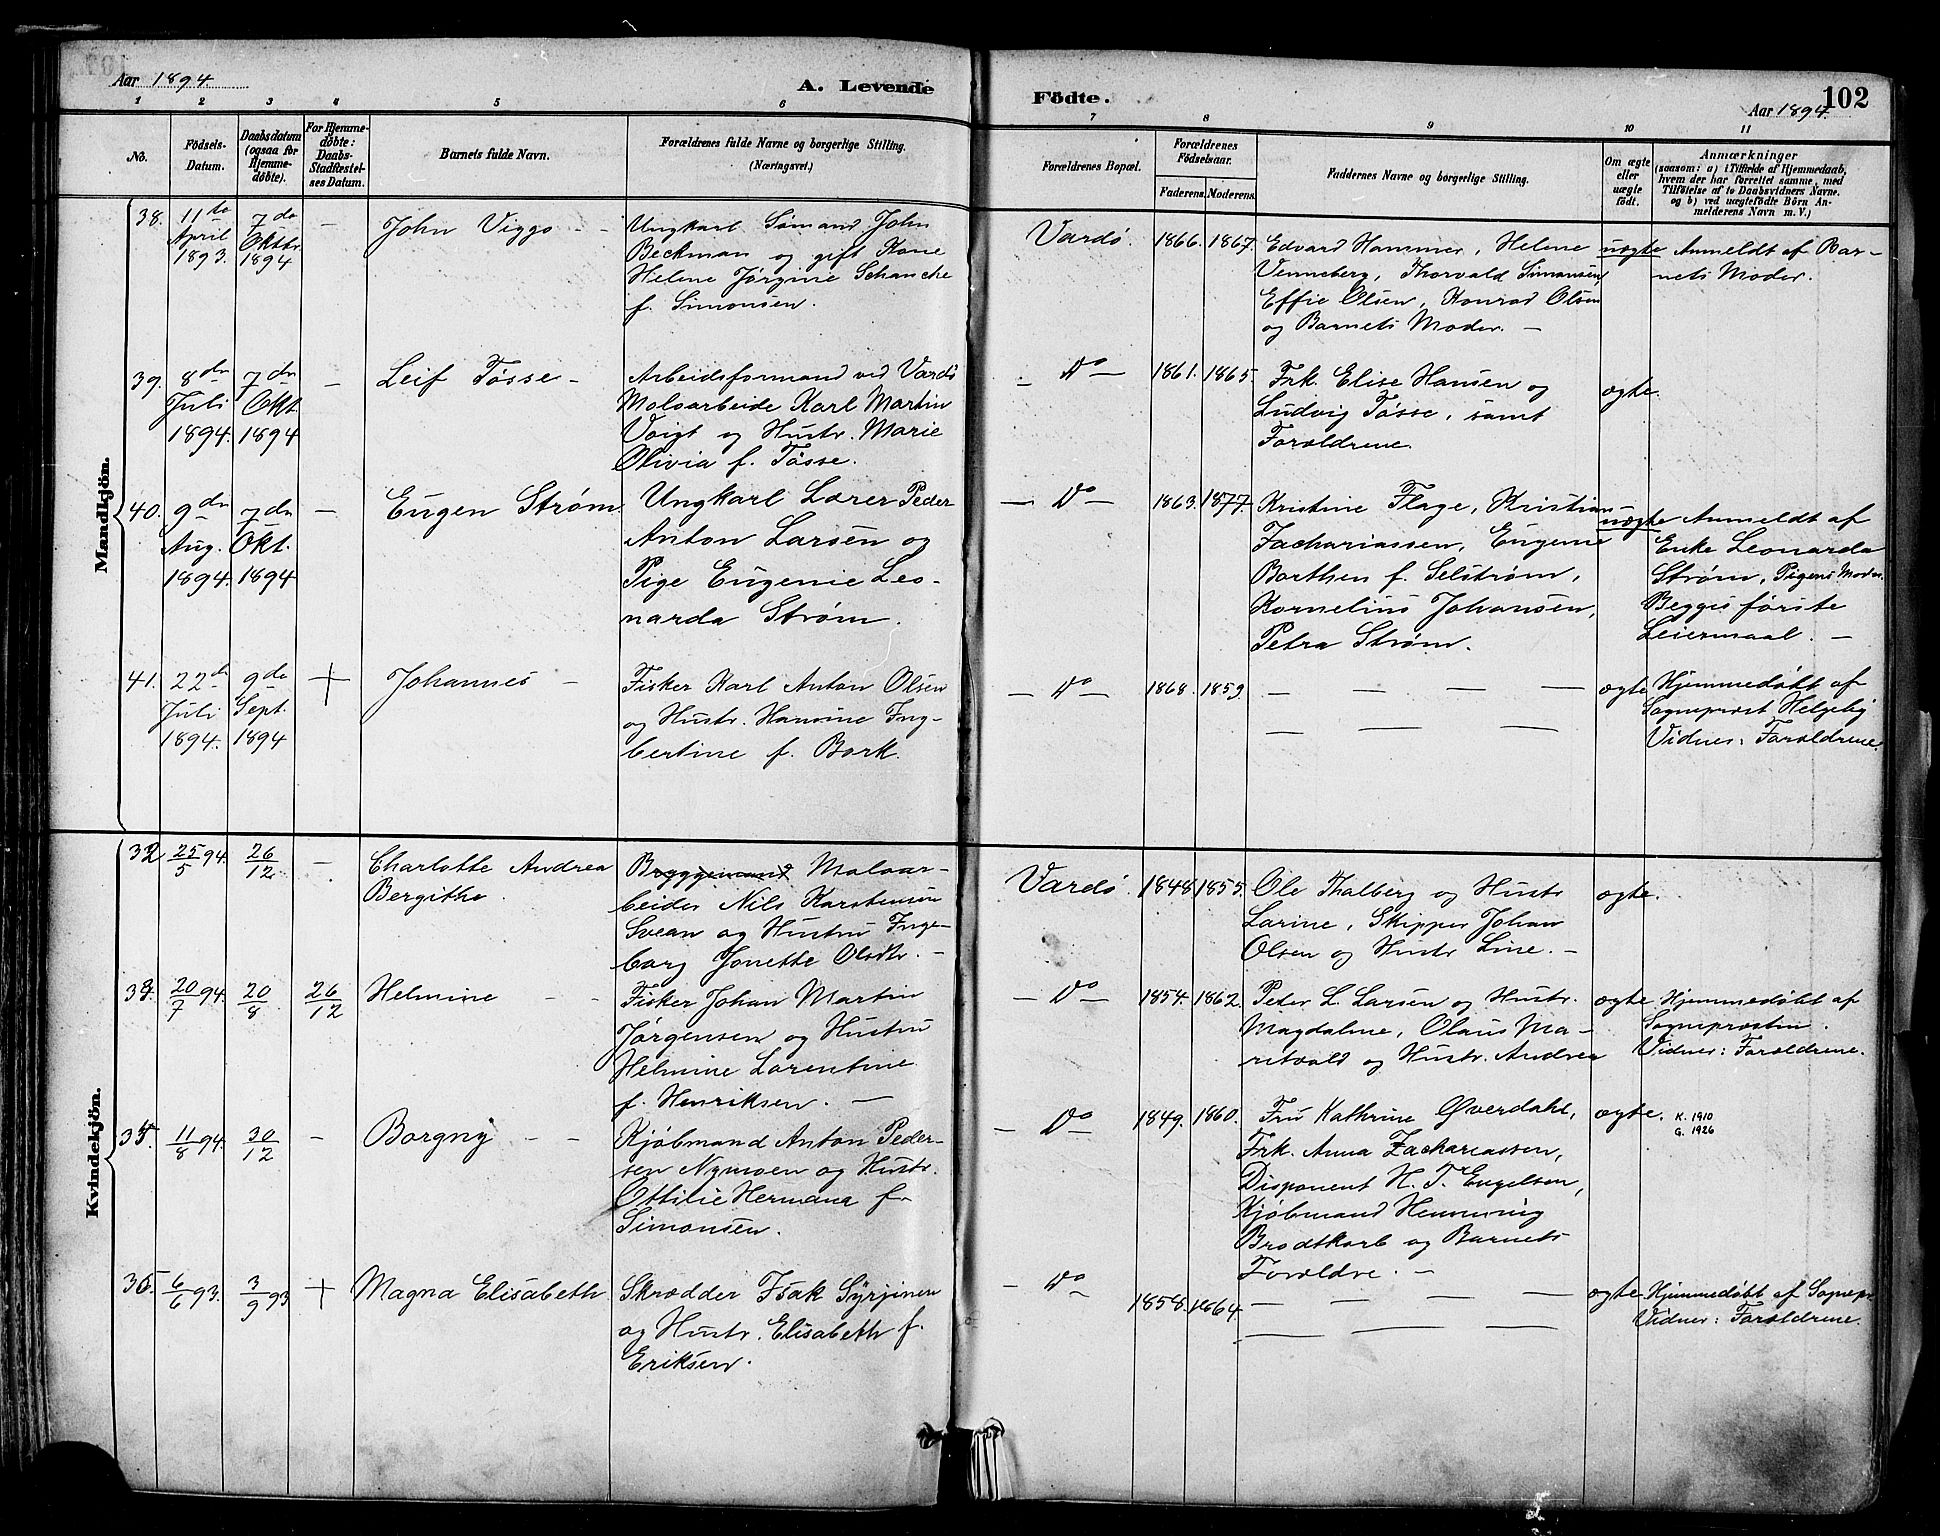 Aar 1894.
A. Levende
Födte.
Aar 1894.
102
1 2 3 4 5 6 7 8 9 10 11
No.
Födsels-
Datum.
Daabsdatum
(ogsaa for
Hjemme-
døbte).
For Hjemme-
døbte:
Daabs-
Stadfæstel-
ses Datum.
Barnets fulde Navn.
Forældrenes fulde Navne og borgerlige Stilling.
(Næringsvei.)
Forældrenes Bopæl.
Forældrenes
Födselsaar.
Faderens.
Moderens.
Faddernes Navne og borgerlige Stilling.
Om ægte
eller
uægte
født.
Anmærkninger
(saasom: a) i Tilfælde af Hjemmedaab,
hvem der har forrettet samme, med
Tilföielse af to Daabsvidners Navne.
og b) ved uægtefödte Börn An-
melderens Navn m. V.)
Mandkjön.
38.
11te
April
1893.
7de
Oktbr
1894
—
John Viggo
Ungkarl Sømand John
Beckman og gift Kone
Helene Jørgine Schanche
f. Simonsen.
Vardö.
1866. 1867.
Edvard Hammer, Helene
Venneberg, Thorvald Simonsen,
Effie Olsen, Konrad Olsen
og Barnets Moder. —
uægte
Anmeldt af Bar-
nets Moder.
39.
8de
Juli
1894.
7de
Okt.
1894
—
Leif Tösse —
Arbeidsformand ved Vardö
Moloarbeide Karl Martin
Voigt og Hustr. Marie
Olivia f. Tösse.
— Do —
1861. 1865.
Frk. Elise Hansen og
Ludvig Tösse, samt
Forældrene.
ægte.
40.
9de
Aug.
1894.
7de
Okt.
1894
—
Eugen Strøm
Ungkarl Lærer Peder
Anton Larsen og
Pige Eugenie Leo-
narda Strøm.
— Do —
1863. 1877
Kristine Flage, Kristian
Zachariassen, Eugenie
Barthsen f. Selstrøm,
Kornelius Johansen,
Petra Strøm.
uægte
Anmeldt af
Enke Leonarda
Strøm, Pigens Moder.
Begges förste
Leiermaal. —
41.
22de
Juli
1894.
9de
Sept.
1894
+
Johannes —
Fisker Karl Anton Olsen
og Hustr. Hansine Ing-
bertine f. Bork.
— Do —
1868. 1859.
— — — —
— — —
ægte
Hjemmedøbt af
Sogneprest Helgeby
Vidner: Forældrene.
Kvindekjön.
32
25/5 94.
26/12
—
Charlotte Andrea
Bergithe
Bryggemand Moloar-
beider Nils Karstensen
Svean og Hustru Inge-
borg Jonette Olsdtr. —
Vardö.
1848. 1855.
Ole Thalberg og Hustr
Larine, Skipper Johan
Olsen og Hustr Line. —
ægte.
34.
20/7 94.
20/8
26/12
Helmine — —
Fisker Johan Martin
Jørgensen og Hustru
Helmine Lorentine
f. Henriksen. —
— Do —
1854. 1862.
Peter L. Larsen og Hustr.
Magdalene, Olaus Ma-
ritvold og Hustr. Andrea
ægte
Hjemmedøbt af
Sognepræsten.
Vidner: Forældrene.
35.
11/8 94.
30/12
—
Borgny — —
Kjøbmand Anton Peder-
sen Nymoen og Hustr.
Ottilie Hermana f.
Simonsen.
— Do —
1849. 1860.
Fru Kathrine Øverdahl,
Frk. Anna Zachariassen,
Disponent H. T. Engelsen,
Kjøbmand Henning
Brodtkorb og Barnets
Forældre. —
ægte.
K. 1910
G. 1926
36.
6/6 93.
3/9 93
+
Magna Elisabeth
Skrædder Isak Syrjinen
og Hustr. Elisabeth f.
Eriksen.
— Do —
1858. 1864.
— — — —
— — —
ægte
Hjemmedøbt af Sognepr
Vidner: Forældrene.